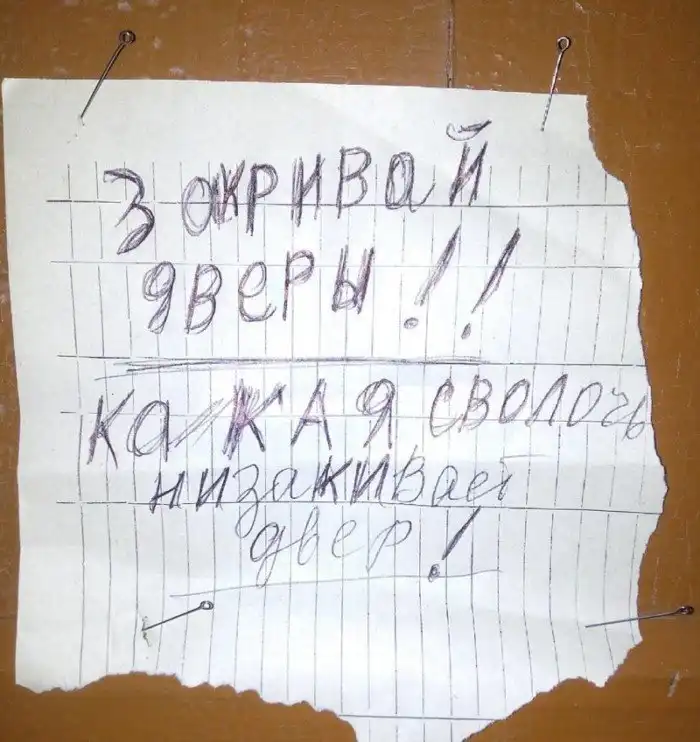 ЗАКРИВАЙ
ДВЕРЫ!!
КАКАЯ СВОЛОЧЬ
низакивает
двер!